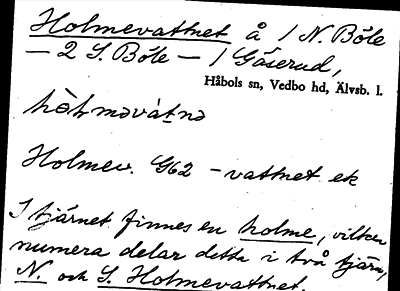 Holmevattnet å 1 N. Böle
— 2 S. Böle — 1 Gäserud,
Håbols sn, Vedbo hd, Älvsb. l.
hòlməvàtnə
Holmev. G62 - vattnet ek
I tjärnet finnes en holme, vilken
numera delar detta i två tjärn,
N. och S. Holmevattnet.